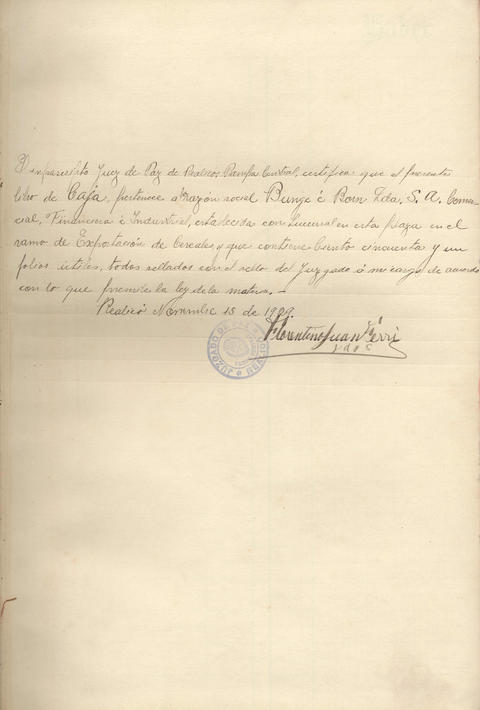 Haber
El infrascripto Juez de Paz de Realicó Pampa Central, certifica que el presente
libro de Caja, pertenece a la razón social Bunge é Born Ltda. S. A. Comer-
cial, Financiera é Industrial, establecida con Sucursal en esta plaza en el
ramo de Exportación de Cereales y que contiene Ciento cincuenta y un
folios útiles, todos sellados con el sello del Juzgado á mi cargo de acuerdo
con lo que prescribe la ley de la materia.-
Realicó Noviembre 15 de 1929.
Florentino Juan Ferri
JUZGADO DE PAZ
REALICÓ